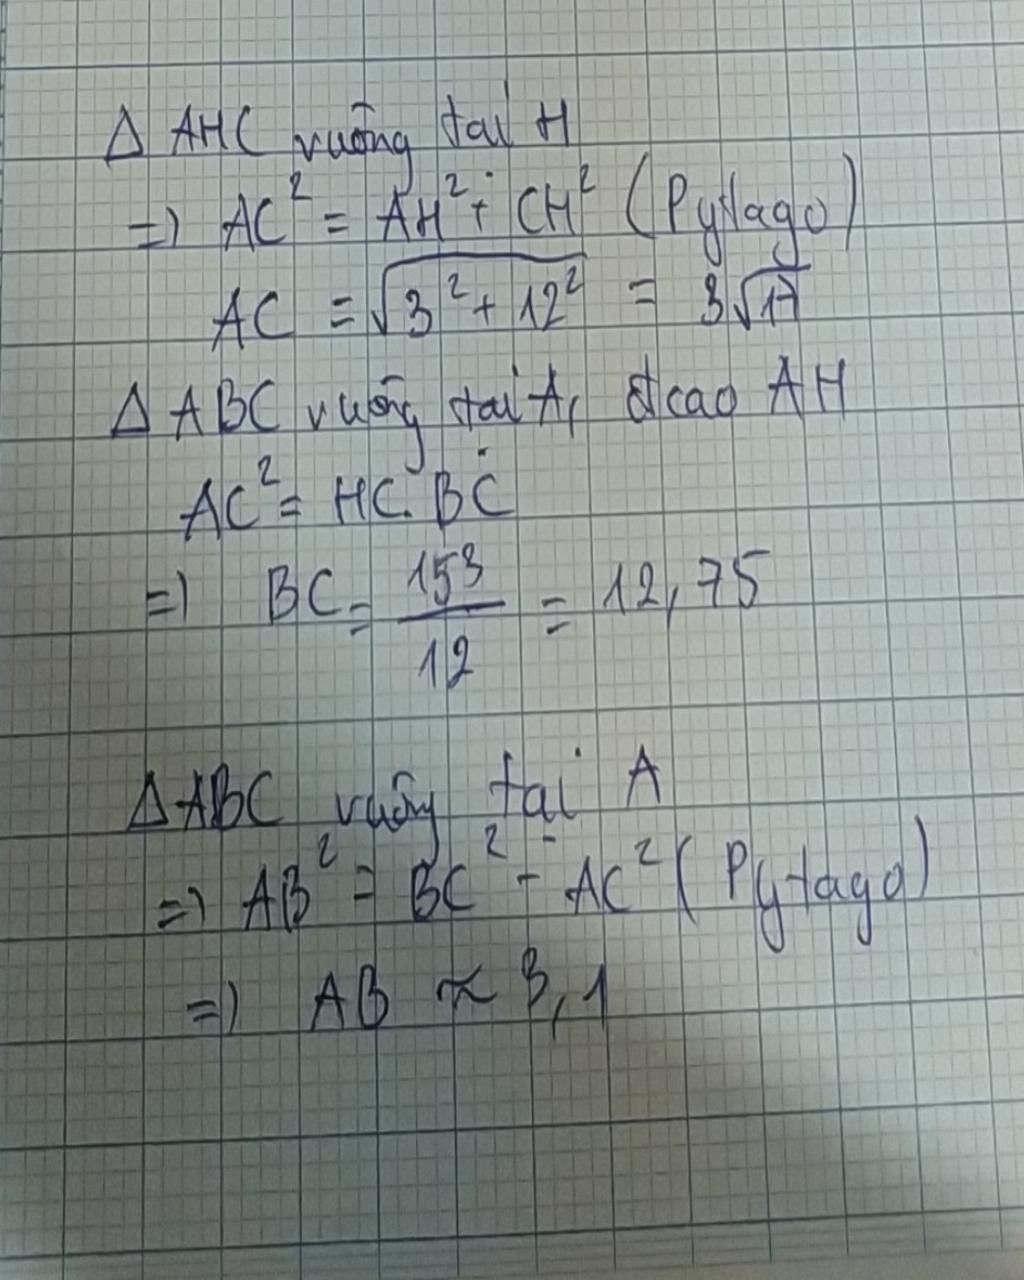 Δ AHC vuông tại H
=> AC² = AH² + CH² (Pytago)
AC = √3² + 12² = 3√17
Δ ABC vuông tại A, đcao AH
AC² = HC. BC
=> BC = 153/12 = 12,75
Δ ABC vuông tại A
=> AB² = BC² - AC² (Pytago)
=> AB ≈ 3,1